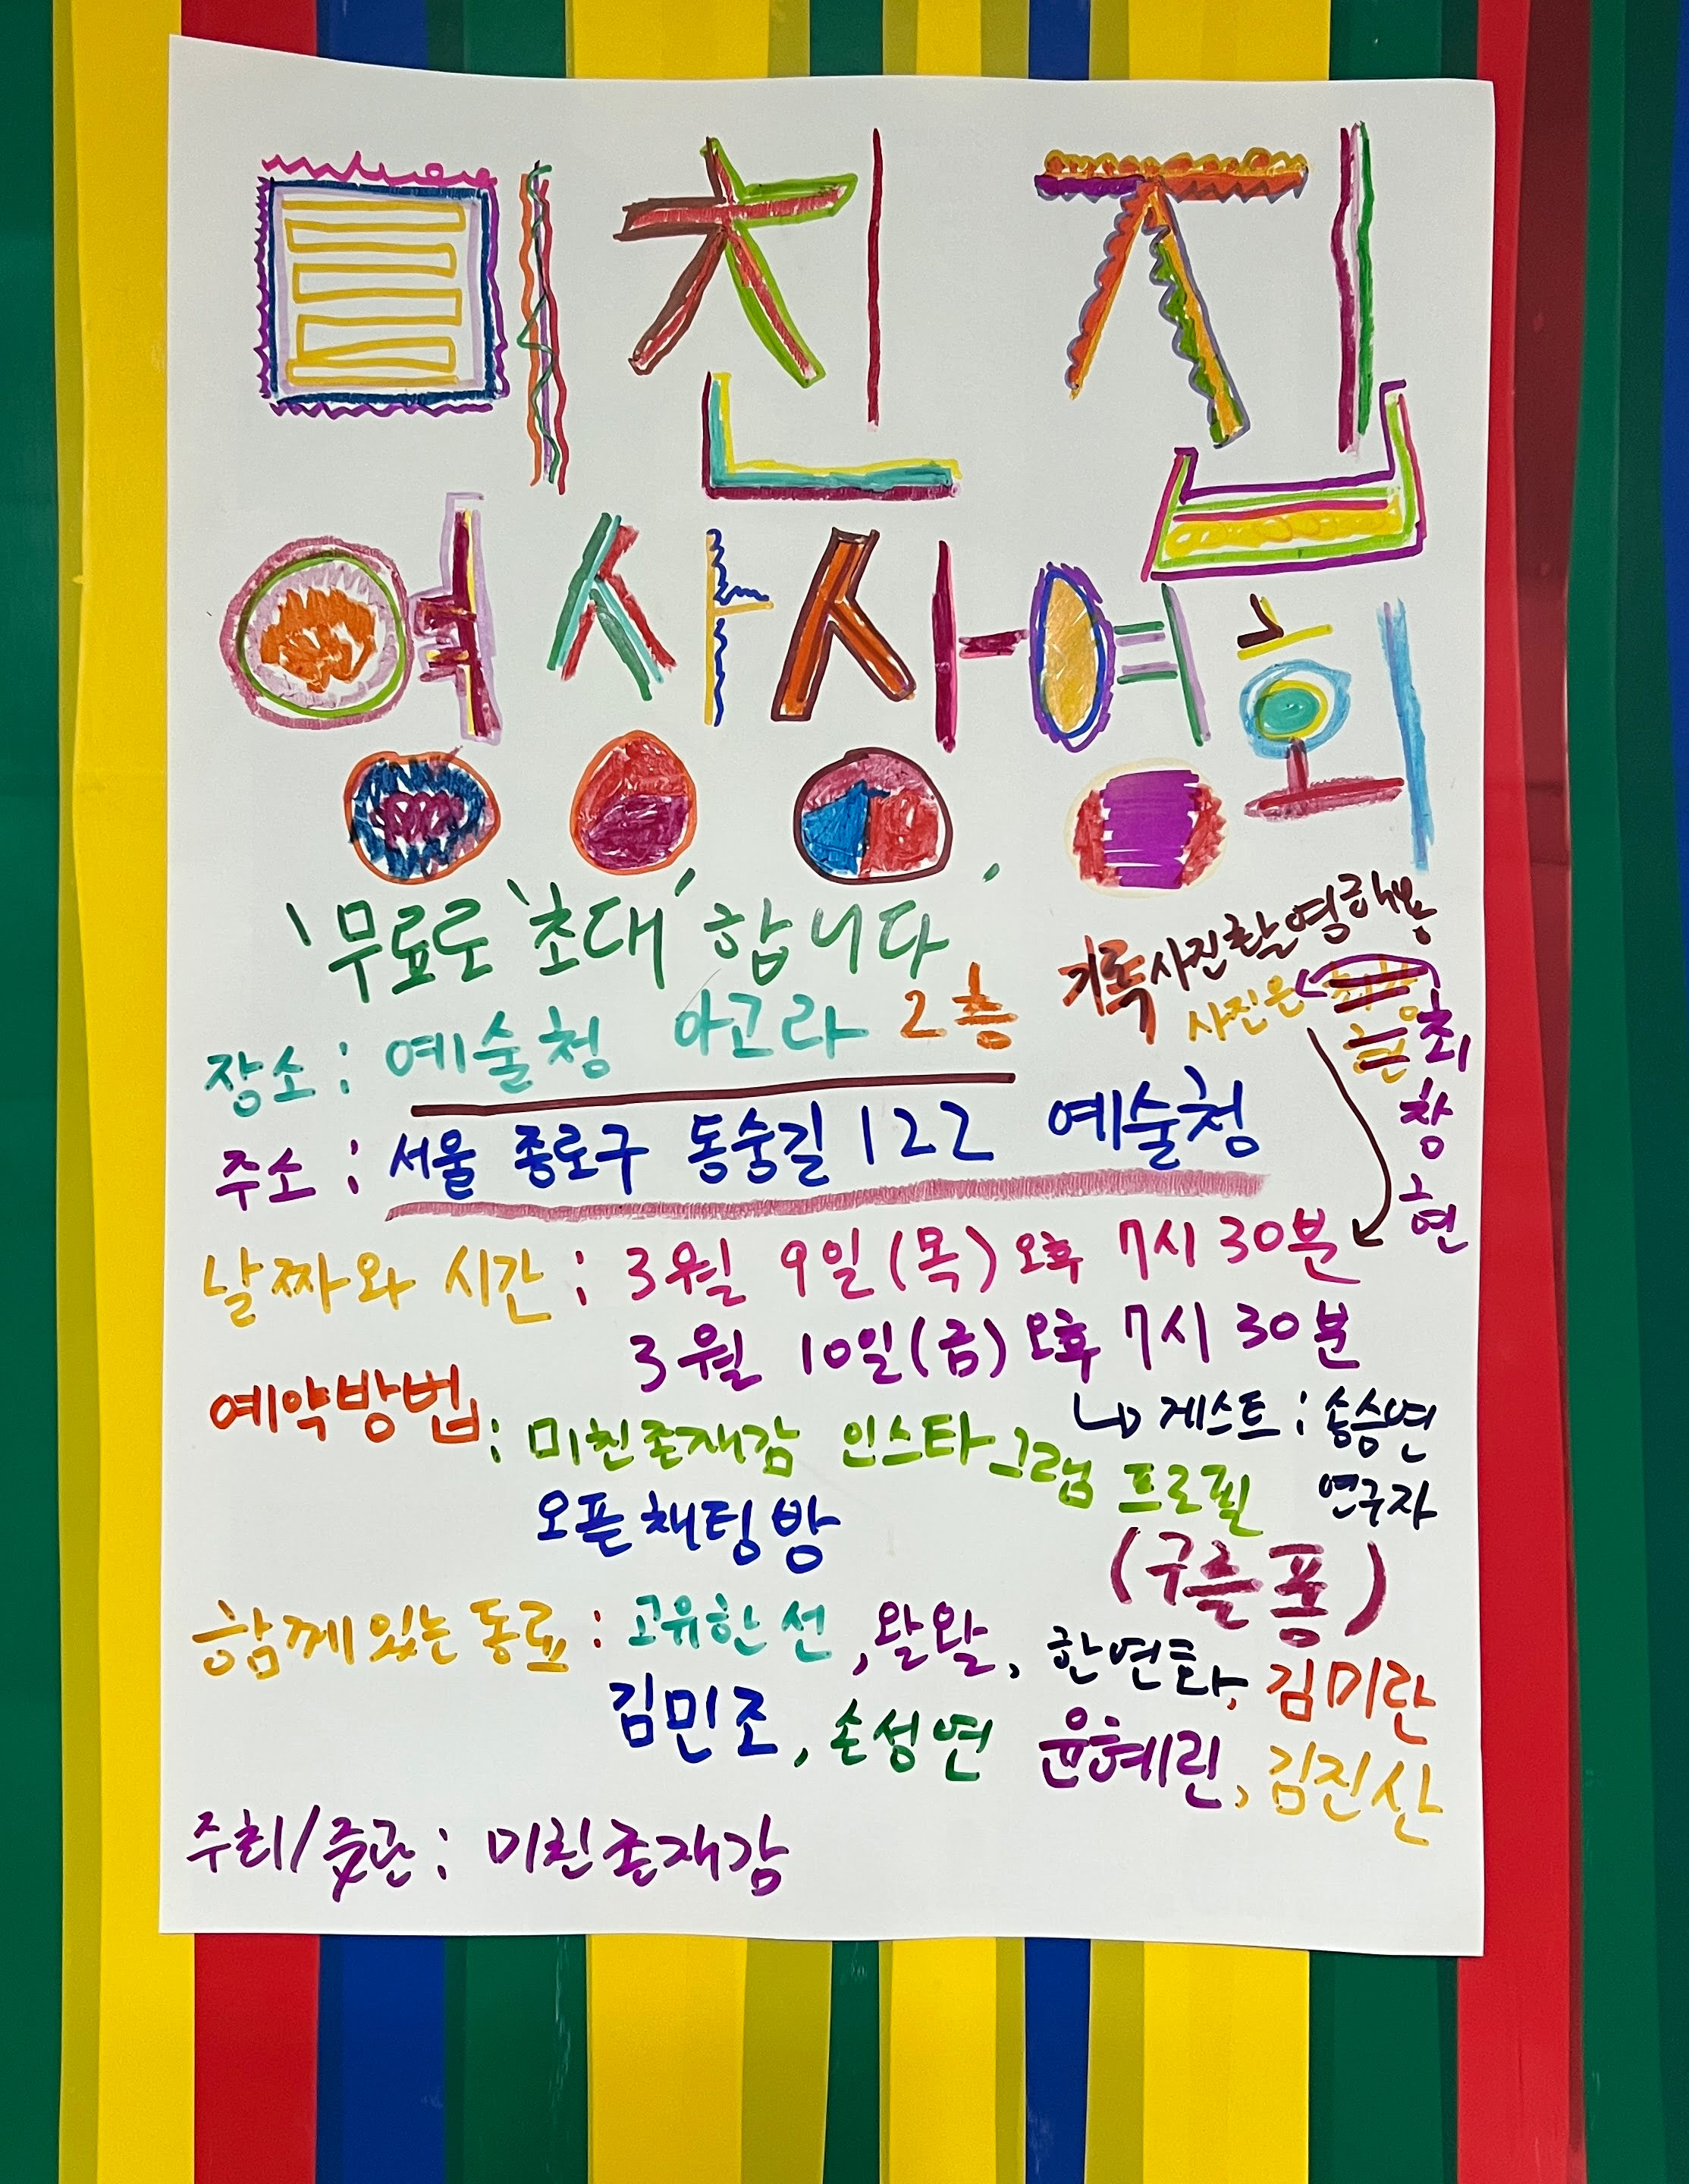 미친 진
영상상여회
'무료로 '초대' 합니다'
기록사진촬영해용
사진은 최창현
장소: 예술청 아고라 2층
주소: 서울 종로구 동숭길 122 예술청
날짜와 시간: 3월 9일(목) 오후 7시 30분
3월 10일(금) 오후 7시 30분
↳ 게스트: 송승연
연구자
예약방법: 미친존재감 인스타그램 프로필
오픈채팅방
(구글폼)
함께있는 동료: 고유한선, 왈왈, 한연화, 김미란
김민조, 손성연 윤혜린, 김진산
주최/주관: 미친존재감